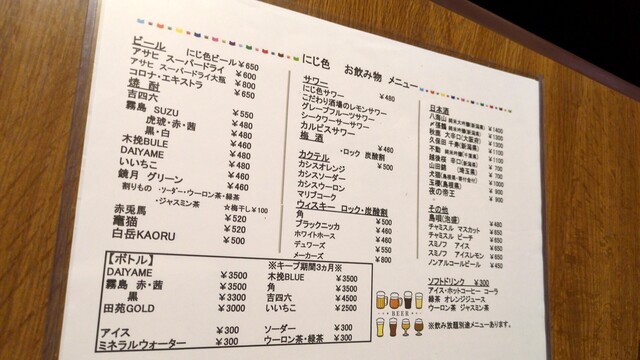 にじ色 お飲み物 メニュー
ビール にじ色ビール ¥650
アサヒ スーパードライ ¥600
アサヒ スーパードライ大瓶 ¥800
コロナ・エキストラ ¥650
焼酎
吉四六 ¥550
霧島 SUZU ¥480
虎斑・赤・茜 ¥480
黒・白 ¥460
木挽BULE ¥460
DAIYAME ¥480
いいちこ ¥460
鏡月 グリーン ¥460
割りもの ・ソーダー・ウーロン茶・緑茶
・ジャスミン茶 ☆梅干し¥100
赤兎馬 ¥520
竈猫 ¥520
白岳KAORU ¥500
サワー ¥480
にじ色サワー
こだわり酒場のレモンサワー
グレープフルーツサワー
シークワーサーサワー
カルピスサワー
梅酒
・ロック 炭酸割 ¥480
カクテル
カシスオレンジ
カシスソーダー
カシスウーロン
マリブコーク
ウィスキー ロック・炭酸割
角 ¥500
ブラックニッカ ¥400
ホワイトホース ¥500
デュワーズ ¥550
メーカーズ ¥800
日本酒
八海山 ¥1400
久保田 千寿(新潟県)
山田錦 (埼玉県)
玉櫻(島根県) ¥900
夜の帝王 ¥900
その他
島唄(泡盛) ¥480
チャミスル マスカット ¥650
チャミスル ピーチ ¥650
スミノフ アイス ¥650
スミノフ アイスレモン ¥650
ノンアルコールビール ¥450
ソフトドリンク ¥300
アイス・ホットコーヒー コーラ
緑茶 オレンジジュース
ウーロン茶 ジャスミン茶
※飲み放題別途メニューあります。
【ボトル】 ※キープ期間3ヵ月※
DAIYAME ¥3500 木挽BLUE ¥3500
霧島 赤・茜 ¥3500 角 ¥3500
黒 ¥3300 吉四六 ¥4500
田苑GOLD ¥3000 いいちこ ¥2500
アイス ¥300 ソーダー ¥300
ミネラルウォーター ¥300 ウーロン茶・緑茶 ¥300
BEER